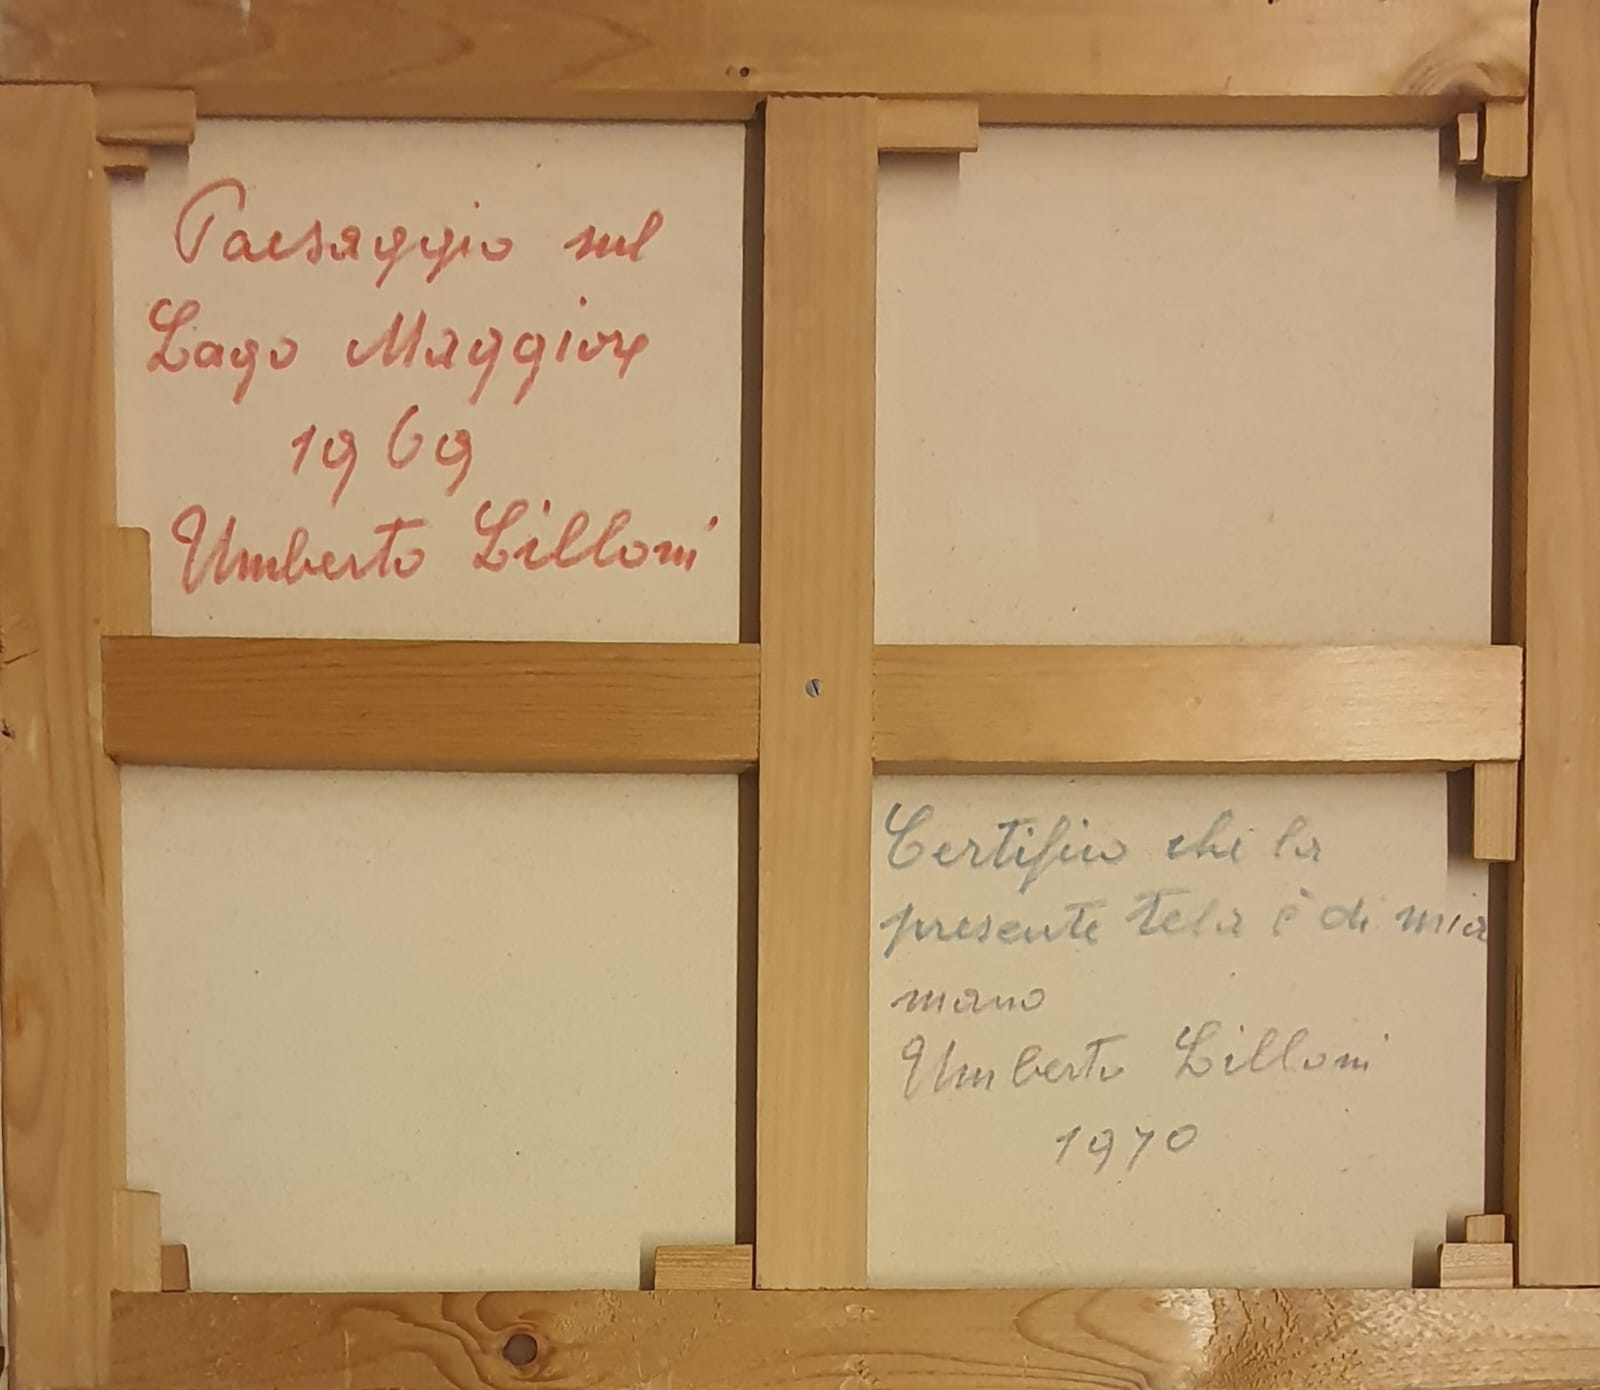 Paesaggio sul
Lago Maggiore
1969
Umberto Lilloni
Certifico che la
presente tela è di mia
mano
Umberto Lilloni
1970